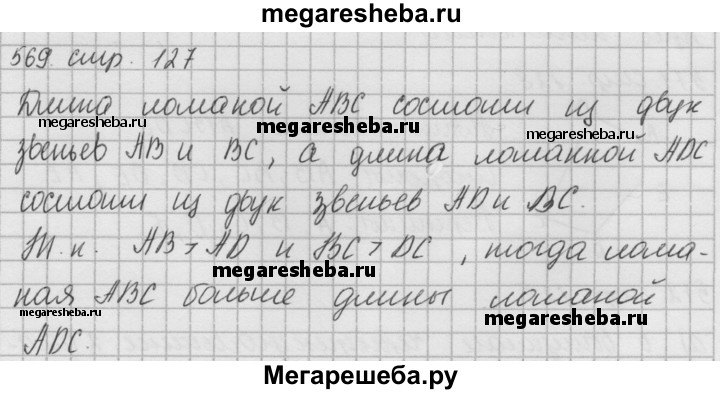 megaresheba.ru
569 стр. 127
Длина ломаной ABC состоит из двух
megaresheba.ru
megaresheba.ru
megaresheba.ru
звеньев AB и BC, а длина ломанной ADC
состоит из двух звеньев AD и BC.
Т.к. AB > AD и BC > DC, тогда лома-
megaresheba.ru
ная ABC больше длины ломаной
megaresheba.ru
ADC.
megaresheba.ru
Мегарешеба.ру